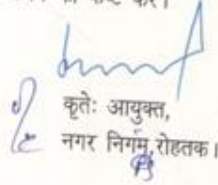 कृतेः आयुक्त,
नगर निगम, रोहतक।